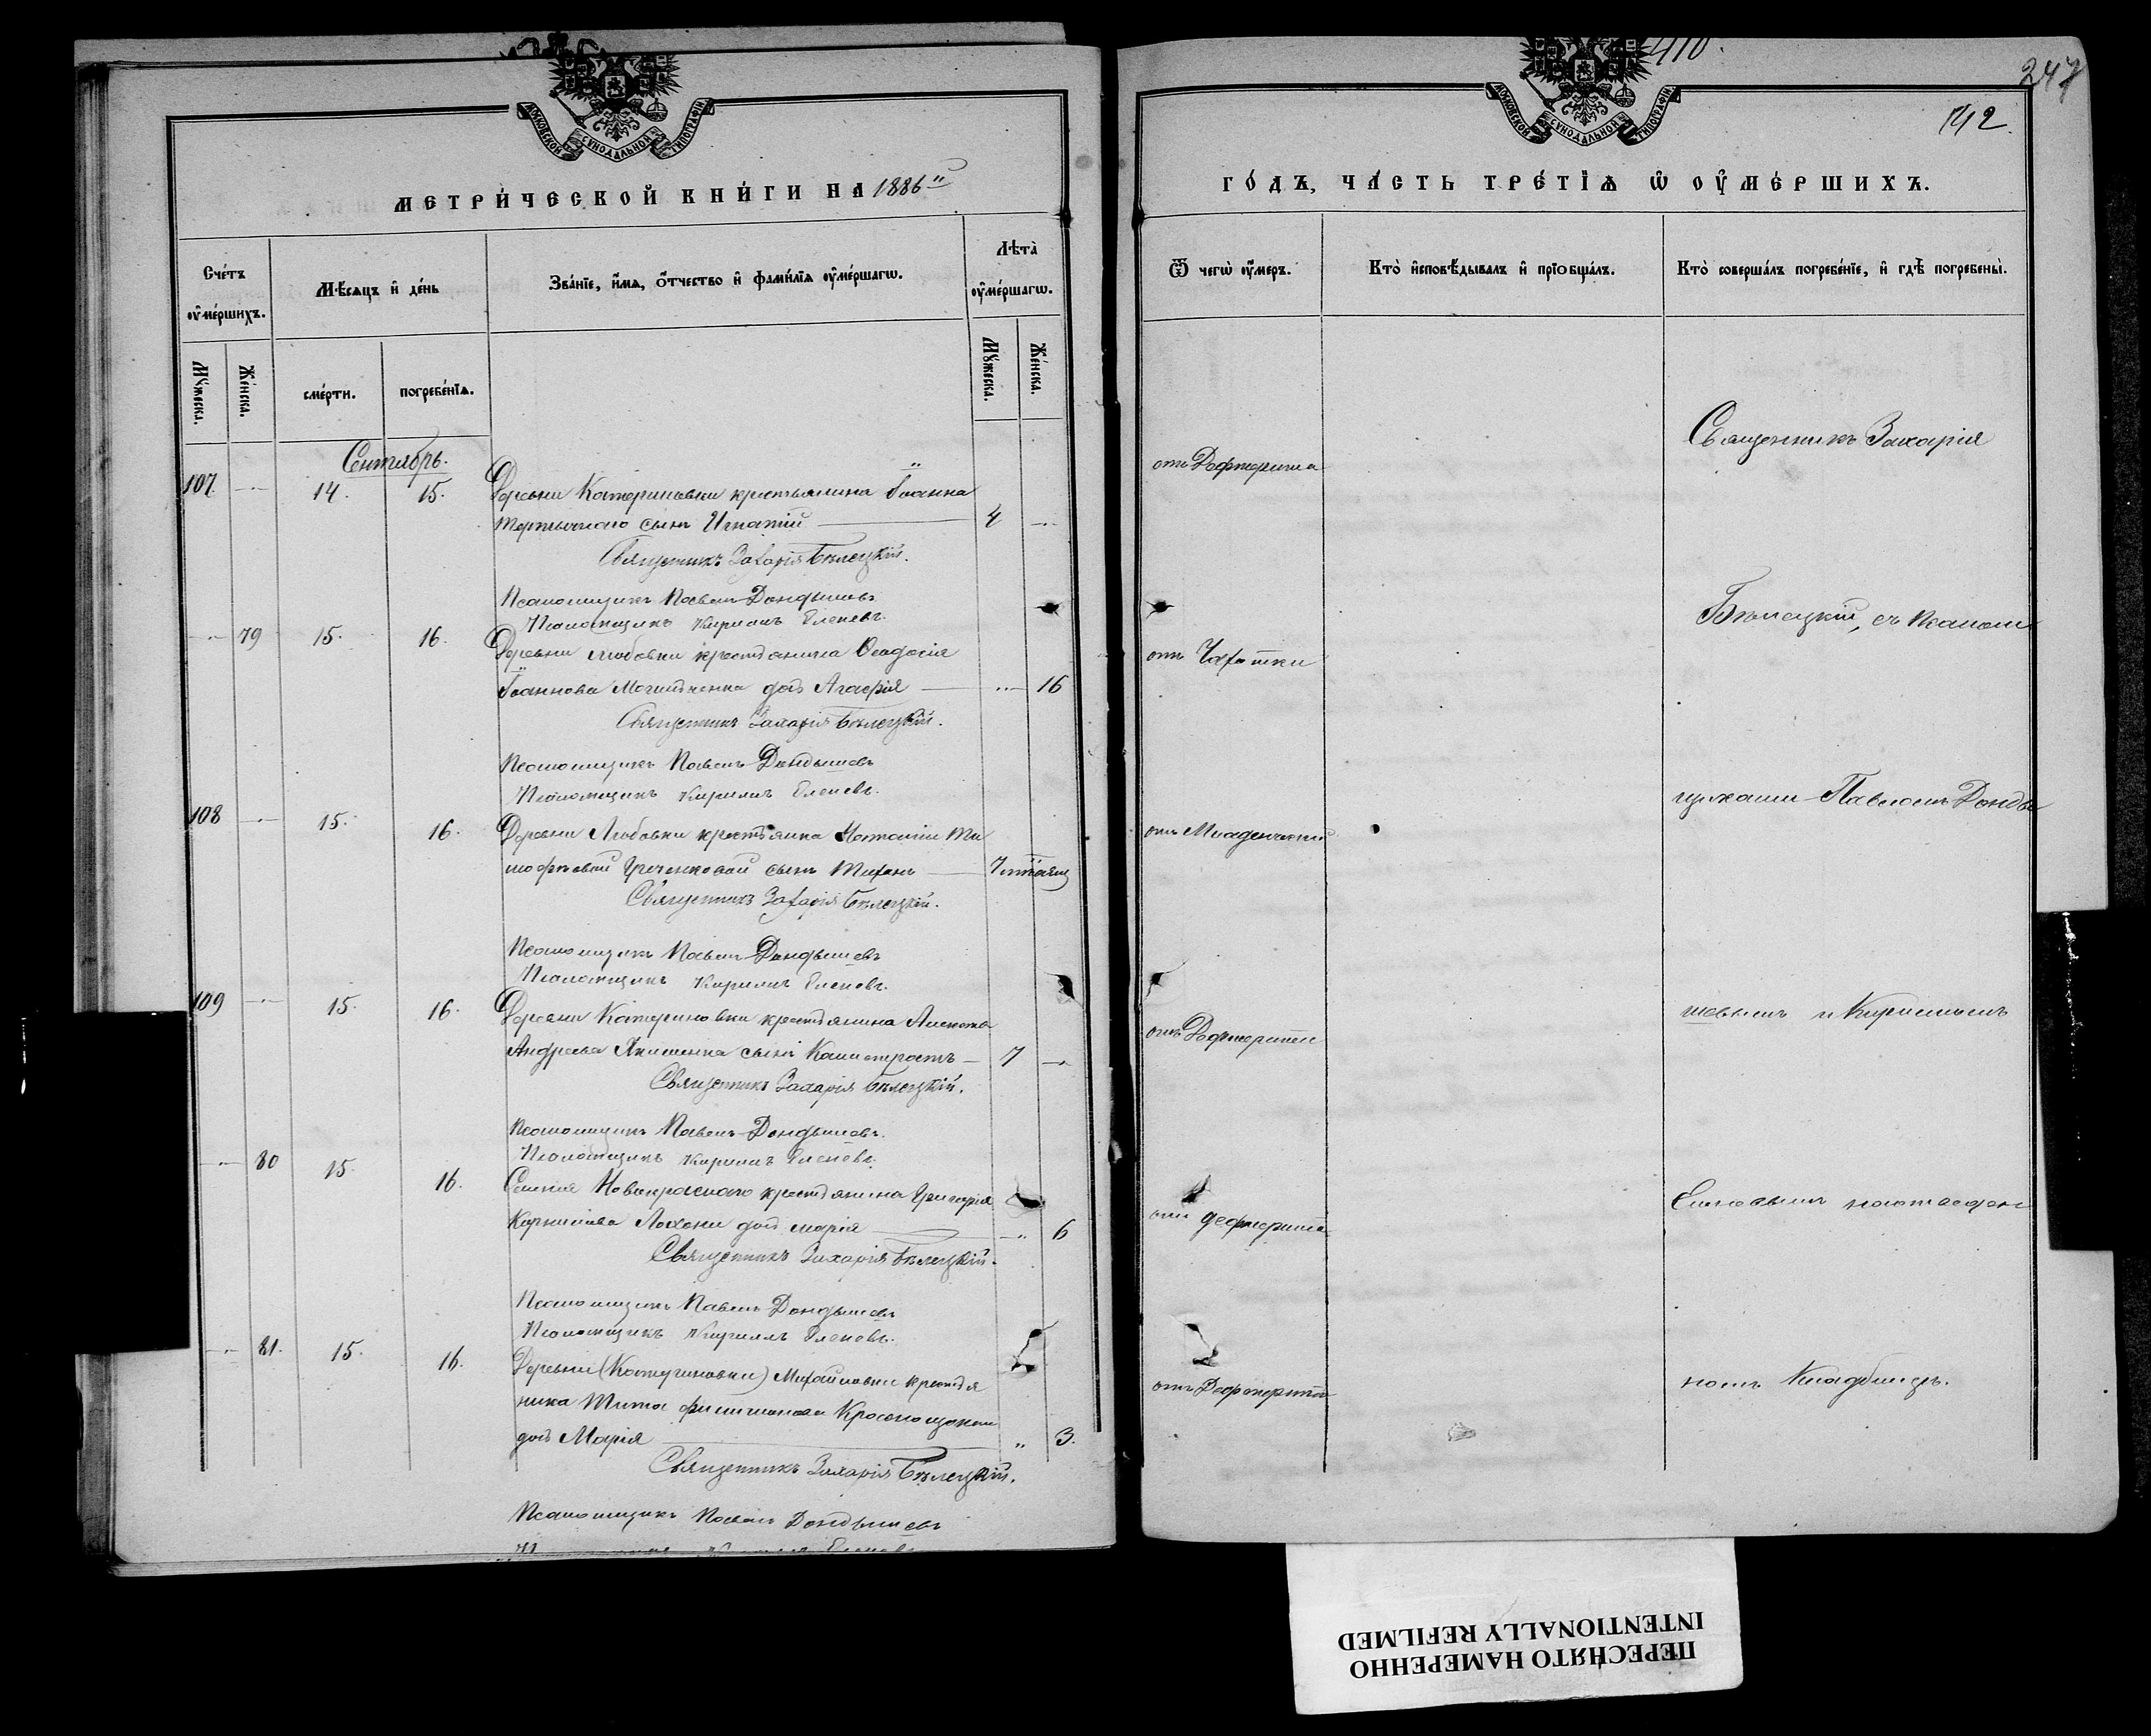 МЕТРИЧЕСКОЙ КНИГИ НА 1886
Счетъ оумершихъ.
Мѣсяцъ и день
Званіе, имя, отчество и фамилія оумершагω.
Лѣта оумершагω.
Мужеска.
Женска.
смерти.
погребенія.
Мужеска.
Женска.
Сентябрь.
107. 14. 15. Деревни Катериновки крестьянина Іоанна
сынъ Игнатій 4
Священникъ Захарія Бѣлецкій.
Псаломщикъ Павелъ Дондышевъ
Псаломщикъ Кириллъ Еленевъ.
79 15. 16. Деревни Любовки крестьянина Ѳеодосія
Іоаннова дочь 16
Священникъ Захарія Бѣлецкій.
Псаломщикъ Павелъ Дондышевъ
Псаломщикъ Кириллъ Еленевъ.
108 15. 16. Деревни Любовки крестьянки Наталіи Ти
мофѣевой сынъ Тихонъ
Священникъ Захарія Бѣлецкій.
Псаломщикъ Павелъ Дондышевъ
Псаломщикъ Кириллъ Еленевъ.
109 15. 16. Деревни Катериновки крестьянина
Андреева Якименка сынъ Калистратъ 7
Священникъ Захарія Бѣлецкій.
Псаломщикъ Павелъ Дондышевъ.
Псаломщикъ Кириллъ Еленевъ.
80 15. 16. Селенія Новокраснаго крестьянина Григорія
Корнилова дочь Марія 6
Священникъ Захарія Бѣлецкій.
Псаломщикъ Павелъ Дондышевъ
Псаломщикъ Кириллъ Еленевъ.
81. 15. 16. Деревни (Катериновки) Михайловки крестья
нина Тита Филимонова
дочь Марія 3.
Священникъ Захарія Бѣлецкій.
Псаломщикъ Павелъ Дондышевъ
410.
247
142.
ГОДЪ, ЧАСТЬ ТРЕТІЯ Ѡ ОУМЕРШИХЪ.
Ѿ чегω оумеръ.
Кто исповѣдывалъ и пріобщалъ.
Кто совершалъ погребеніе, и гдѣ погребены.
отъ Дефтерита
отъ Чахотки
отъ Младенческой
отъ Дефтерита
отъ дефтерита
отъ Дефтерита
Священникъ Захарія
Бѣлецкій, съ псалом
щиками Павломъ Донды
шевымъ и Кирилломъ
Еленевымъ на отведен
номъ Кладбищѣ.
МОСКОВСКОЙ СУНОДАЛЬНОЙ ТИПОГРАФІИ
МОСКОВСКОЙ СУНОДАЛЬНОЙ ТИПОГРАФІИ
ПЕРЕСНЯТО НАМЕРЕННО
INTENTIONALLY REFILMED